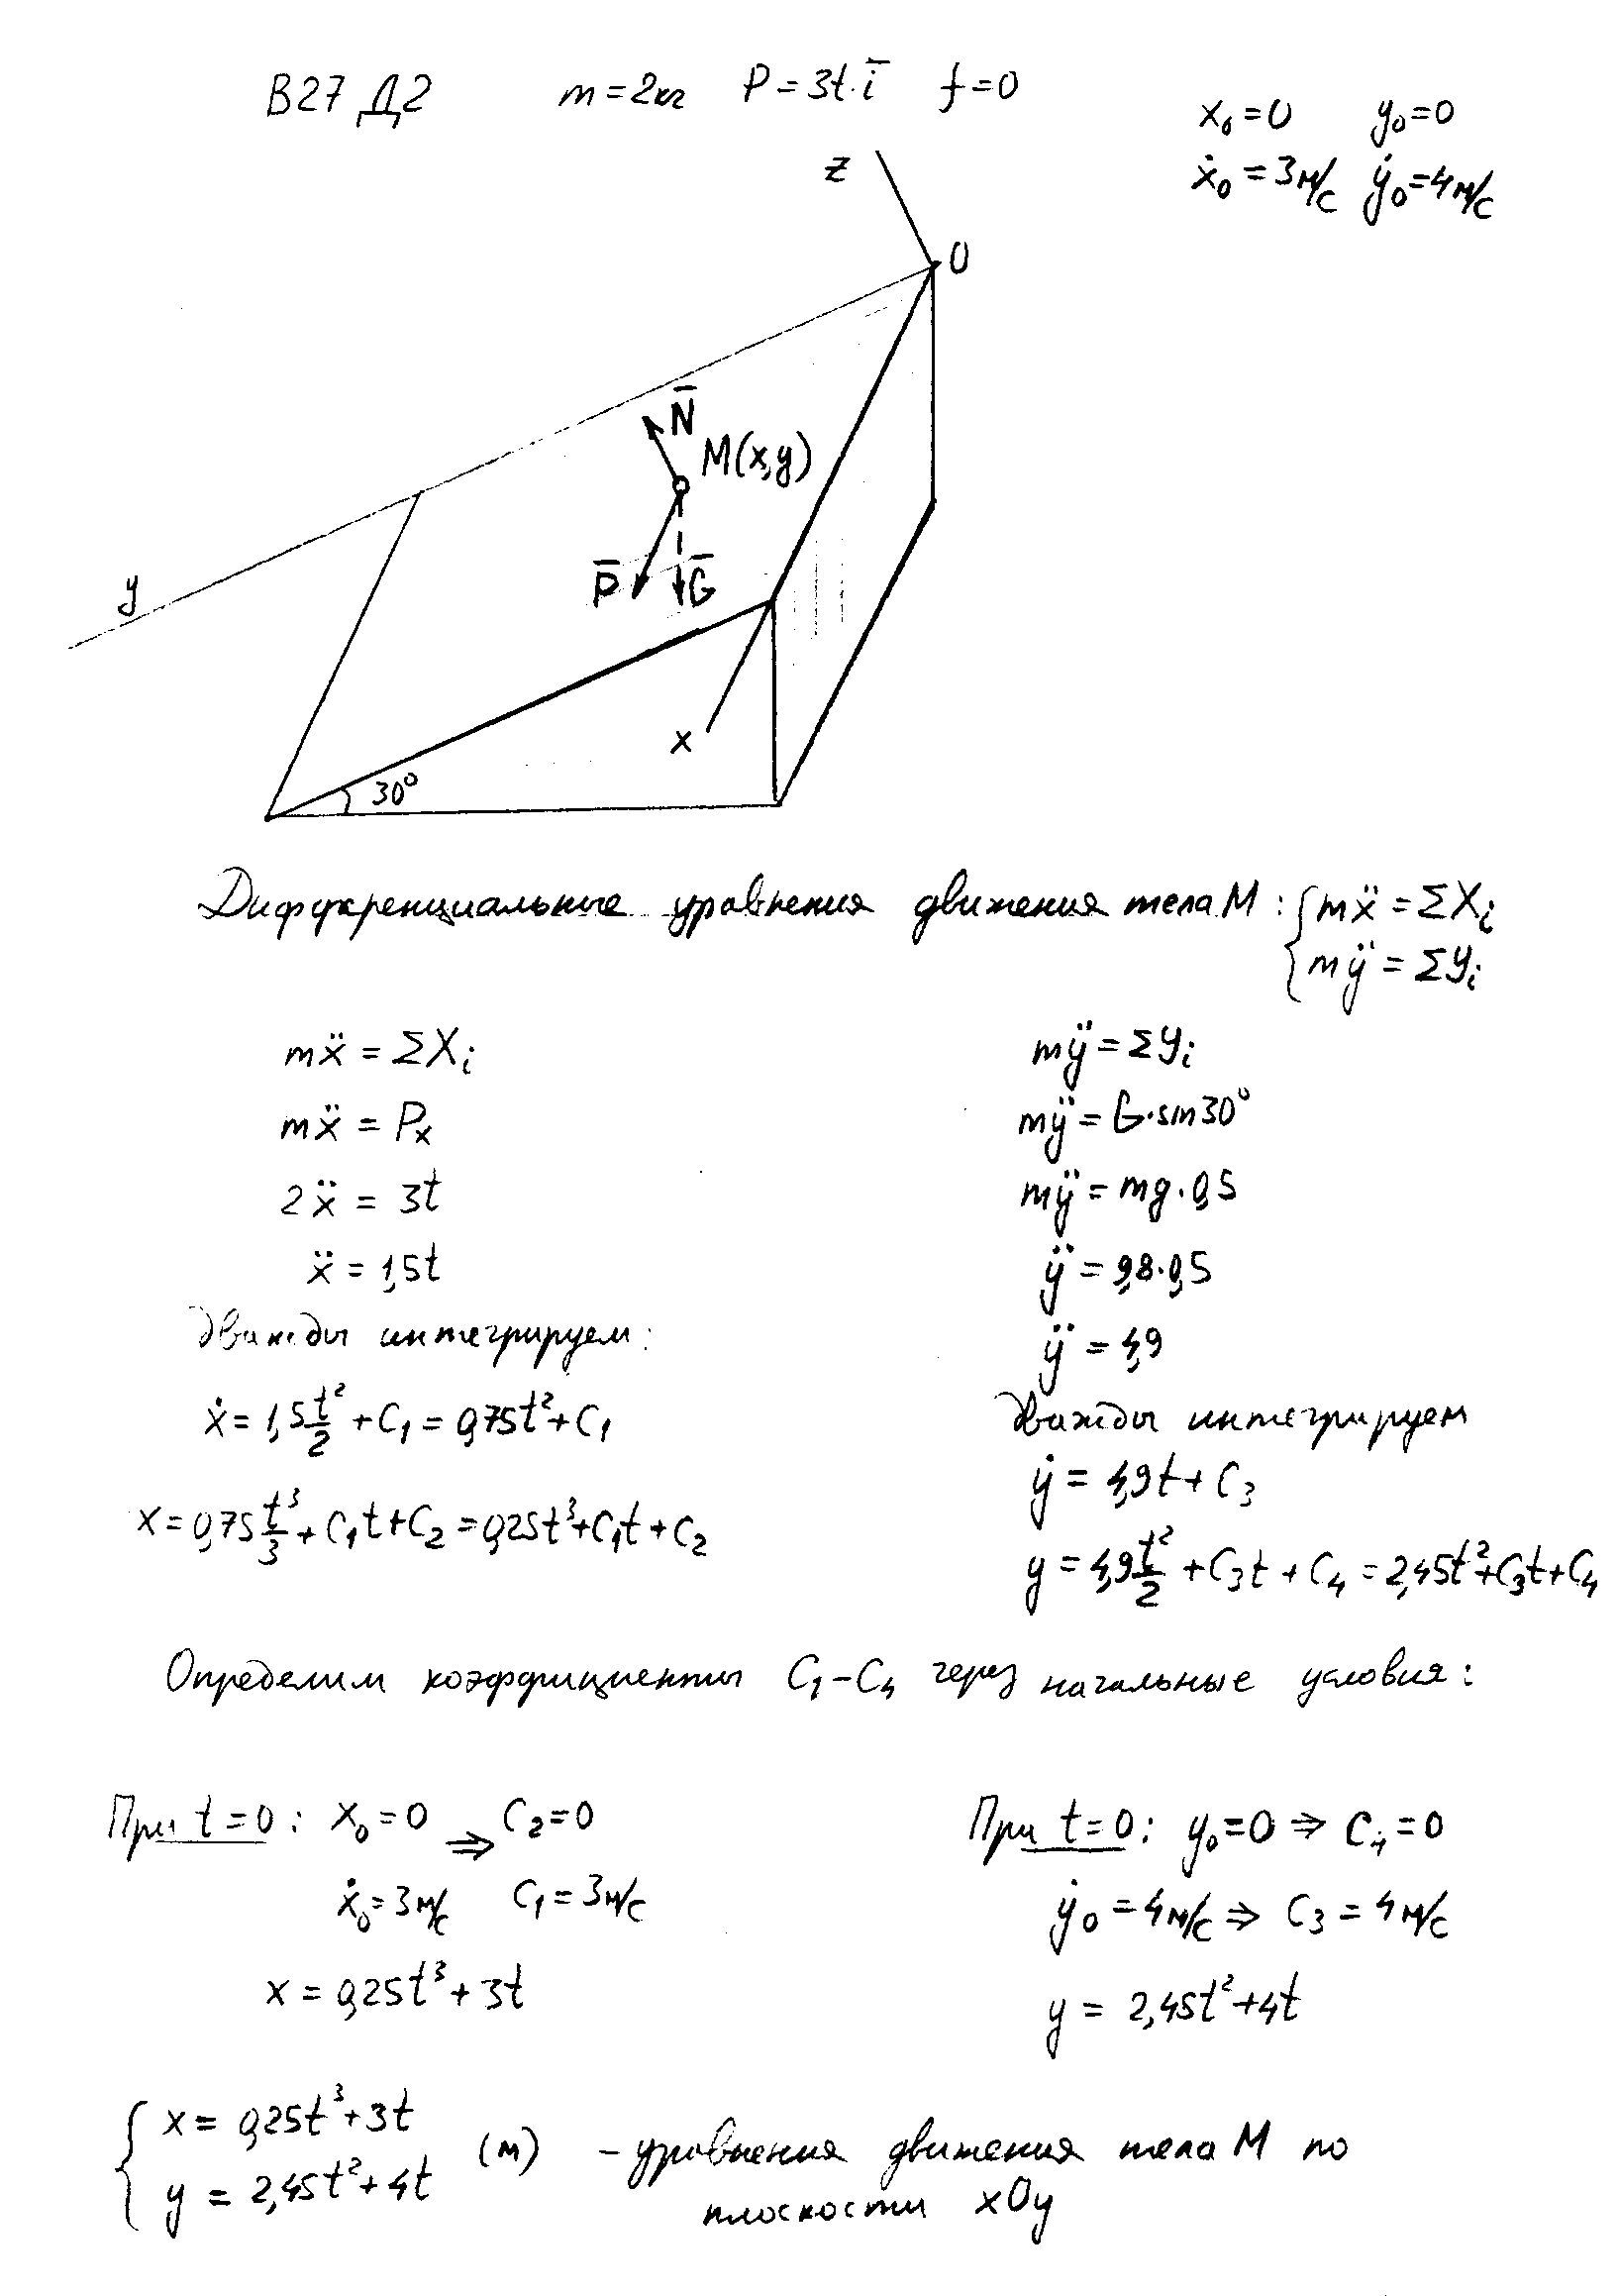 В27 Д2 m=2кг P̄=3t·ī f=0
x₀=0 y₀=0
ẋ₀=3м/с ẏ₀=4м/с
z
O
N̄
M(x,y)
P̄ Ḡ
y
x
30°
Дифференциальные уровнения движения тела M: { mẍ = ΣXᵢ
mÿ = ΣYᵢ
mẍ = ΣXᵢ
mẍ = Pₓ
2ẍ = 3t
ẍ = 1,5t
Дважды интегрируем:
ẋ = 1,5 t²/2 + C₁ = 0,75t² + C₁
x = 0,75 t³/3 + C₁t + C₂ = 0,25t³ + C₁t + C₂
mÿ = ΣYᵢ
mÿ = G·sin30°
mÿ = mg·0,5
ÿ = 9,8·0,5
ÿ = 4,9
Дважды интегрируем
ẏ = 4,9t + C₃
y = 4,9 t²/2 + C₃t + C₄ = 2,45t² + C₃t + C₄
Определим коэффициенты C₁–C₄ через начальные условия:
При t=0: x₀=0 ⇒ C₂=0
ẋ₀=3м/с C₁=3м/с
x = 0,25t³ + 3t
При t=0: y₀=0 ⇒ C₄=0
ẏ₀=4м/с ⇒ C₃=4м/с
y = 2,45t² + 4t
{ x = 0,25t³ + 3t
y = 2,45t² + 4t (м) – уровнения движения тела M по
плоскости xOy